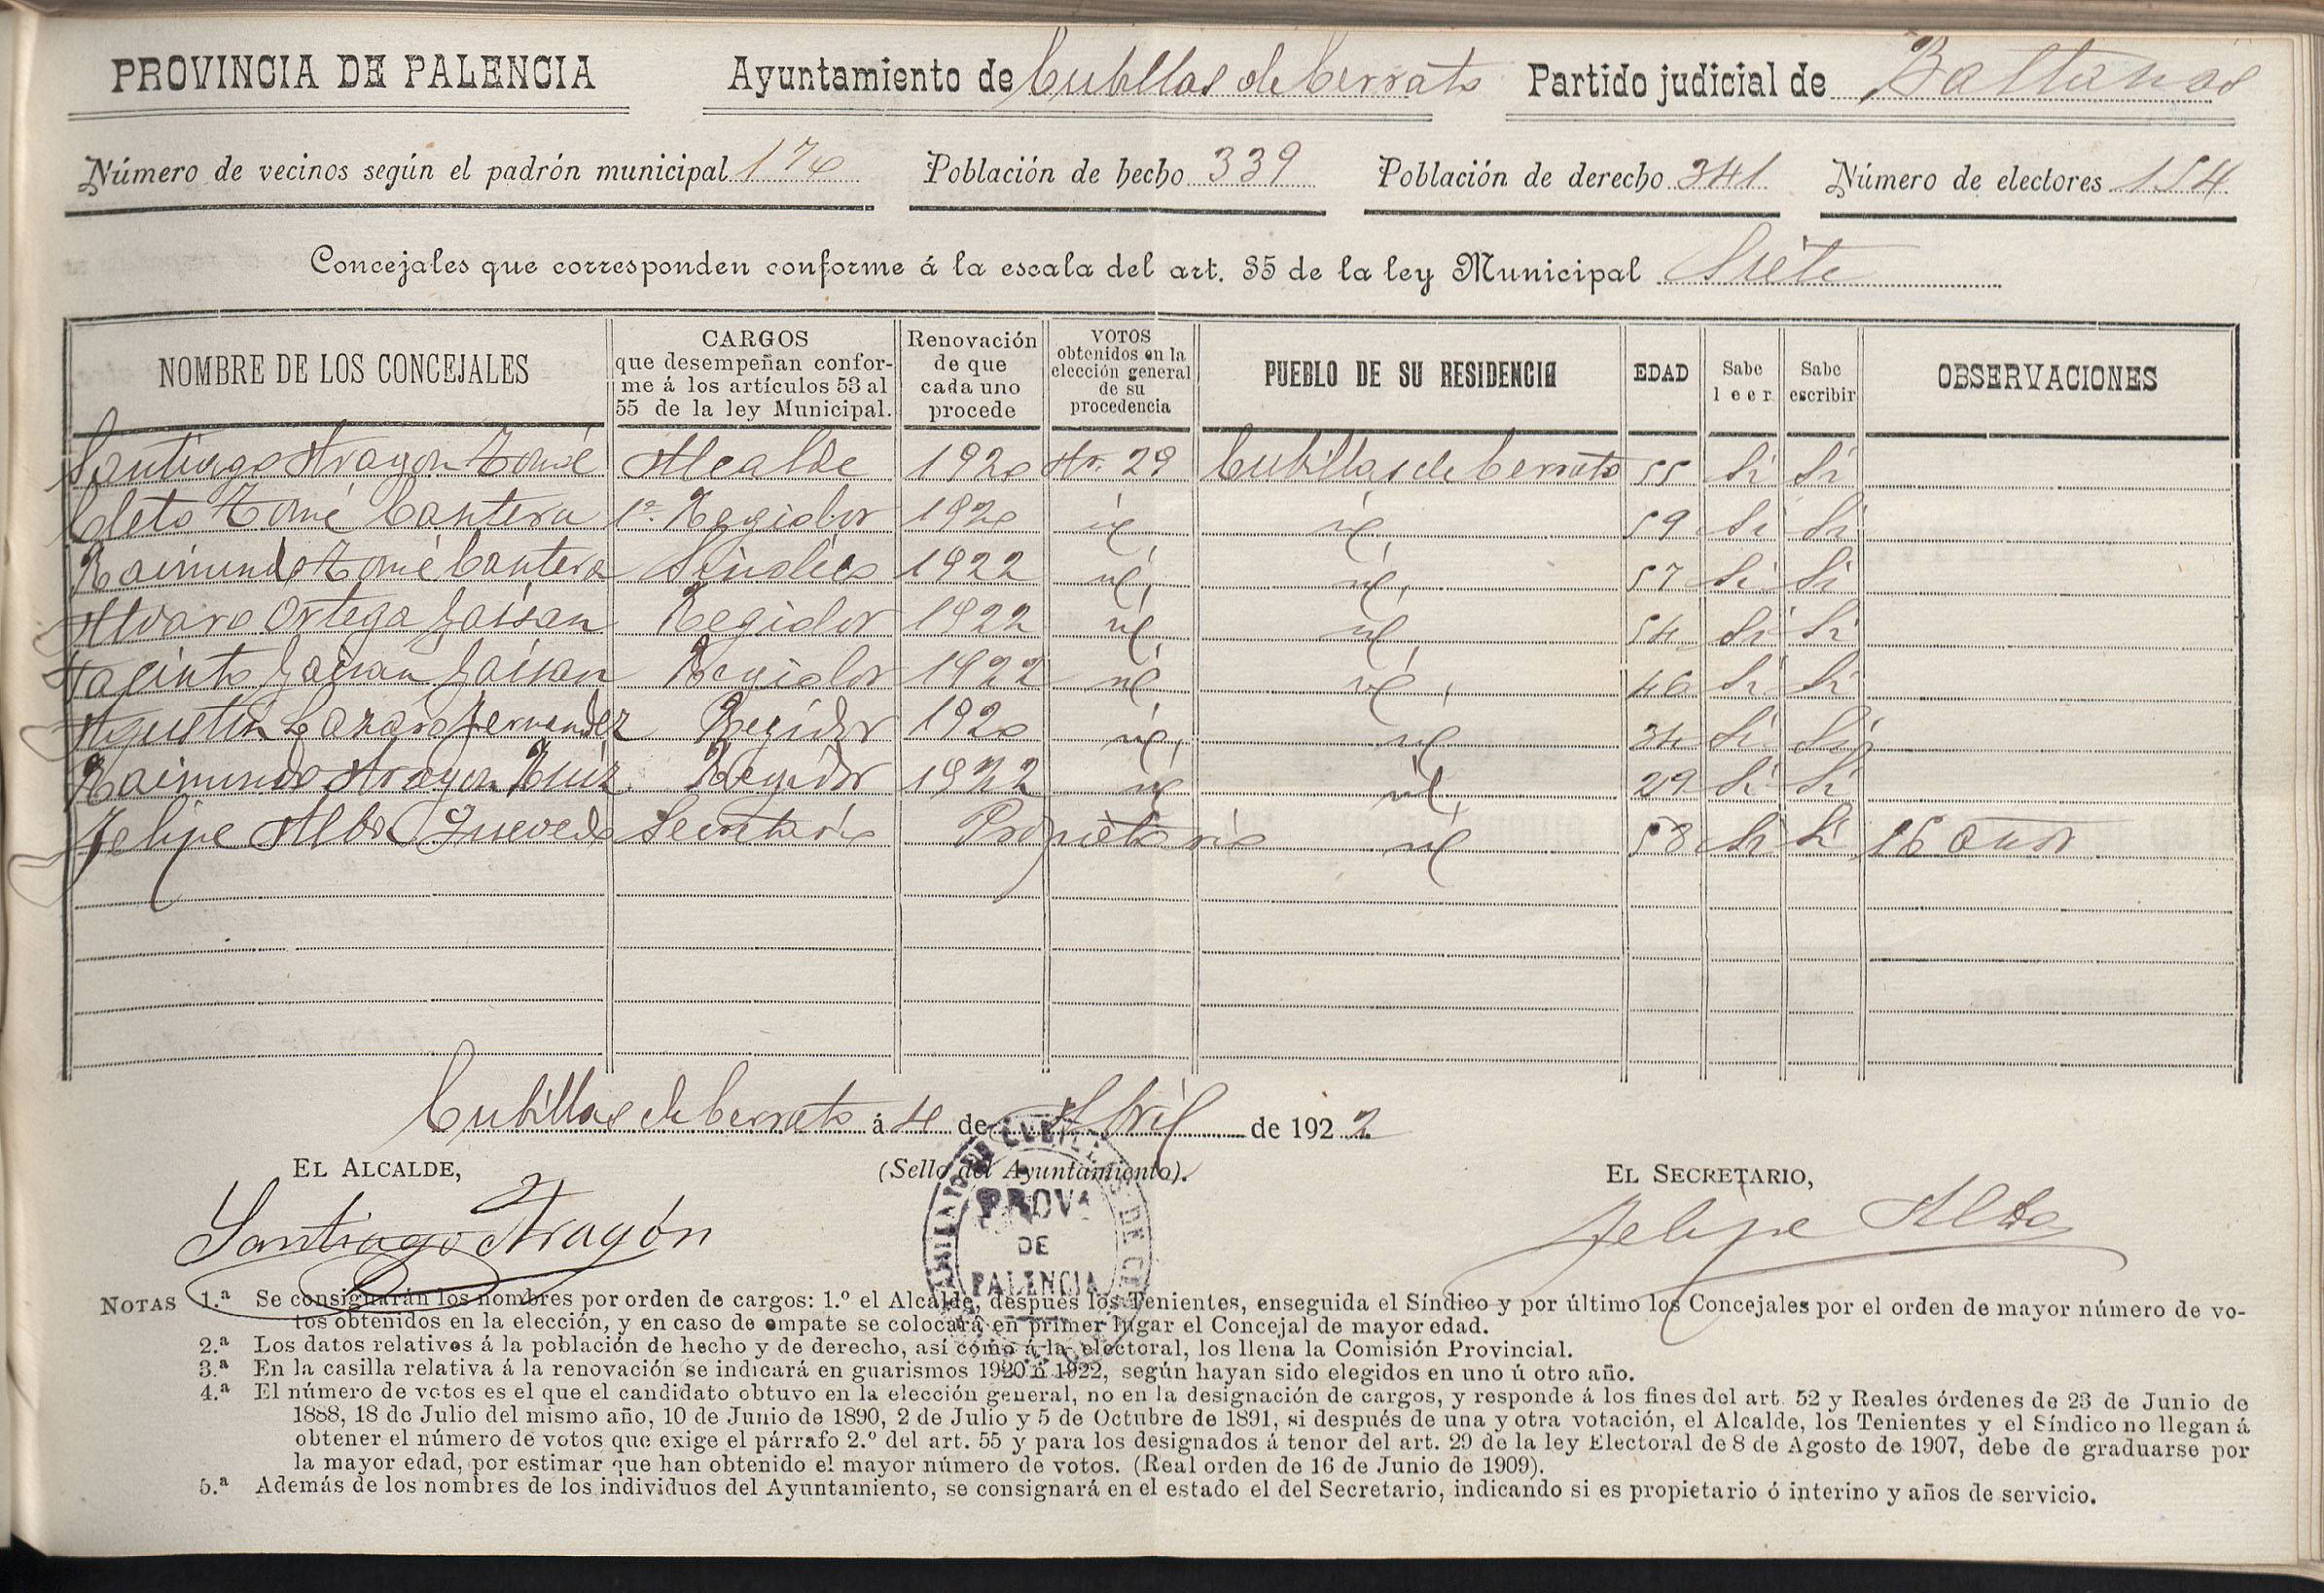 PROVINCIA DE PALENCIA Ayuntamiento de Cubillas de Cerrato Partido judicial de Baltanas
Número de vecinos según el padrón municipal 176 Población de hecho 339 Población de derecho 341 Número de electores 154
Concejales que corresponden conforme á la escala del art. 35 de la ley Municipal Siete
NOMBRE DE LOS CONCEJALES
CARGOS
que desempeñan confor-
me á los artículos 53 al
55 de la ley Municipal.
Renovación
de que
cada uno
procede
VOTOS
obtenidos en la
elección general
de su
procedencia
PUEBLO DE SU RESIDENCIA
EDAD
Sabe
leer
Sabe
escribir
OBSERVACIONES
Santiago Aragon Tomé Alcalde 1920 Ar. 29 Cubillas de Cerrato 55 Si Si
Cleto Tomé Cantera 1º. Regidor 1920 id, id, 59 Si Si
Raimundo Tomé Cantera Sindico 1922 id, id, 57 Si Si
Alvaro Ortega Zaisan Regidor 1922 id, id, 54 Si Si
Jacinto Zaisan Zaisan Regidor 1922 id, id, 46 Si Si
Agustin Cazaro Fernandez Regidor 1920 id, id 34 Si Si
Raimundo Aragon Ruiz Regidor 1922 id id, 29 Si Si
Felipe Alba Quevedo Secretario Propietario id 58 Si Si 16 años
Cubillas de Cerrato á 4 de Abril de 1922
EL ALCALDE,
(Sello del Ayuntamiento).
EL SECRETARIO,
PROVA
DE
PALENCIA
Santiago Aragón
Felipe Alba
NOTAS 1.ª Se consignarán los nombres por orden de cargos: 1.º el Alcalde, después los Tenientes, enseguida el Síndico y por último los Concejales por el orden de mayor número de vo-
tos obtenidos en la elección, y en caso de empate se colocará en primer lugar el Concejal de mayor edad.
2.ª Los datos relativos á la población de hecho y de derecho, así como á la electoral, los llena la Comisión Provincial.
3.ª En la casilla relativa á la renovación se indicará en guarismos 1920 ó 1922, según hayan sido elegidos en uno ú otro año.
4.ª El número de votos es el que el candidato obtuvo en la elección general, no en la designación de cargos, y responde á los fines del art. 52 y Reales órdenes de 23 de Junio de
1888, 18 de Julio del mismo año, 10 de Junio de 1890, 2 de Julio y 5 de Octubre de 1891, si después de una y otra votación, el Alcalde, los Tenientes y el Síndico no llegan á
obtener el número de votos que exige el párrafo 2.º del art. 55 y para los designados á tenor del art. 29 de la ley Electoral de 8 de Agosto de 1907, debe de graduarse por
la mayor edad, por estimar que han obtenido el mayor número de votos. (Real orden de 16 de Junio de 1909).
5.ª Además de los nombres de los individuos del Ayuntamiento, se consignará en el estado el del Secretario, indicando si es propietario ó interino y años de servicio.